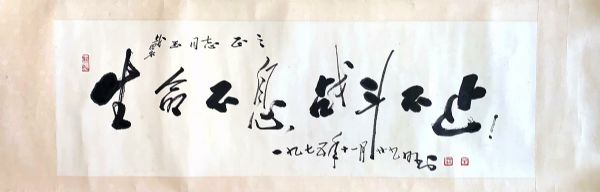 玉同志正之
生命不息,战斗不止!
一九七五年十一月